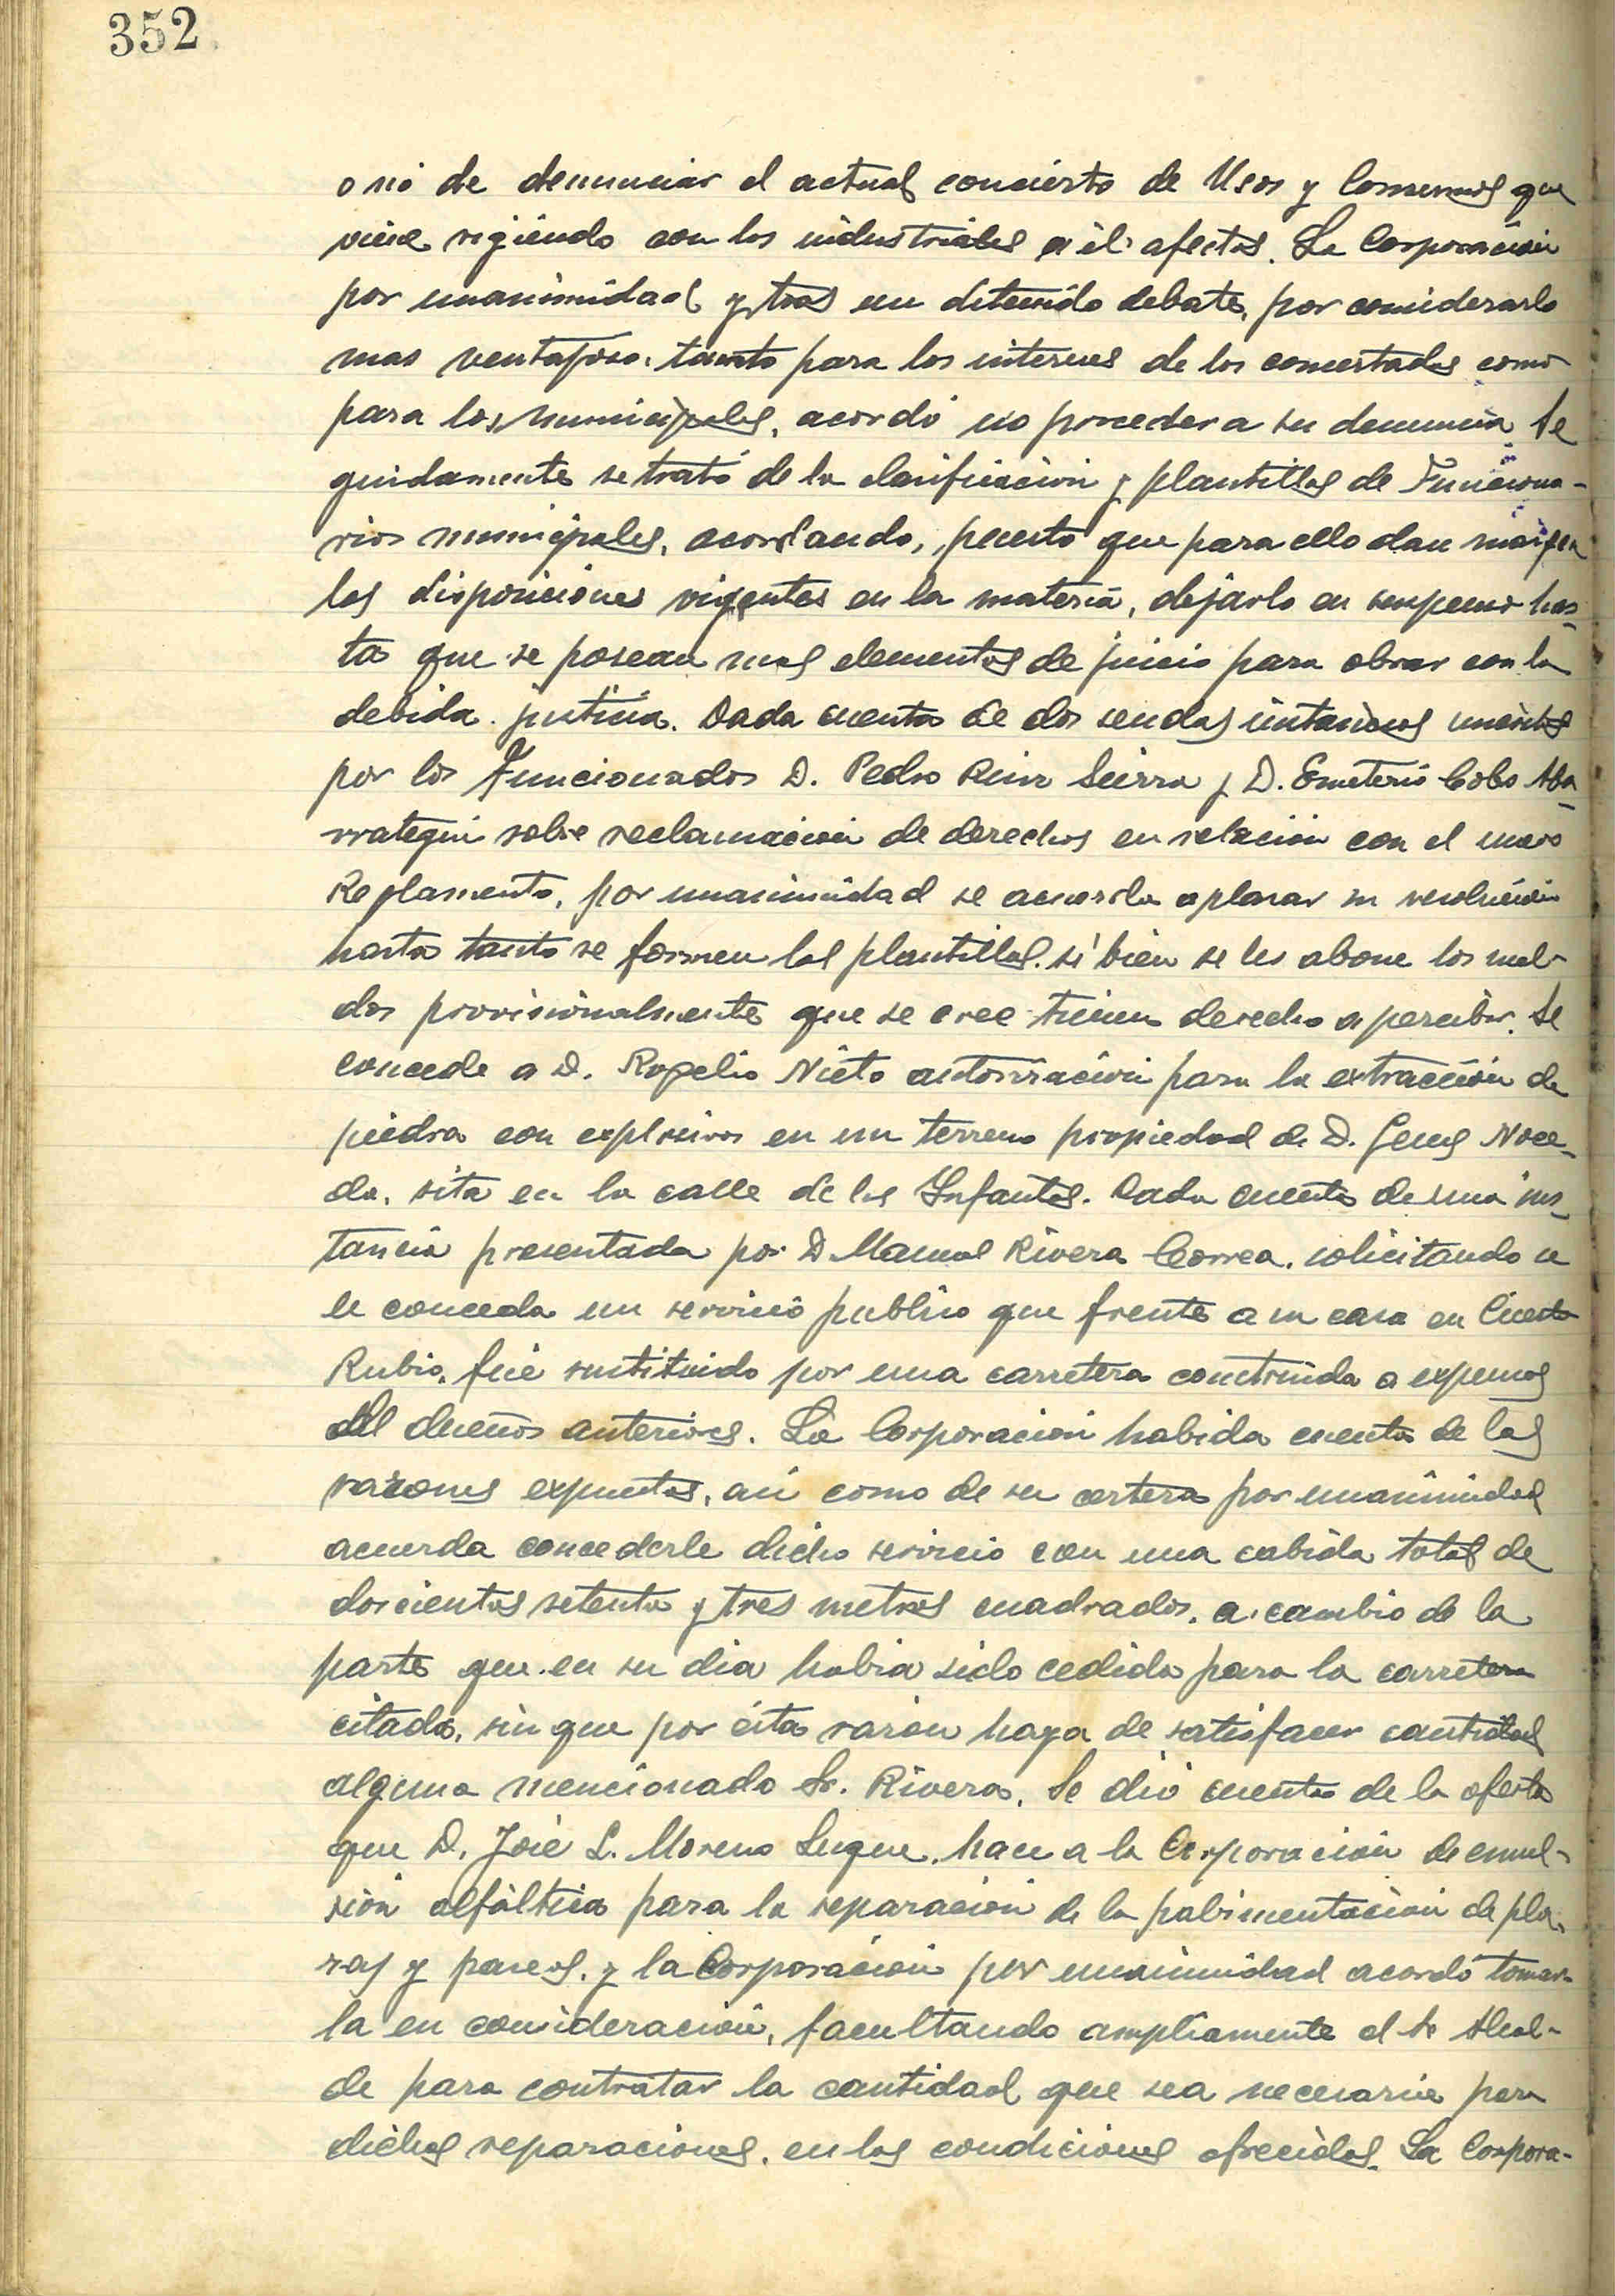 352
o nó de denunciar el actual concierto de Usos y Consumos que
viene rigiendo con los industriales a él afectos. La Corporación
por unanimidad y tras un detenido debate, por considerarlo
mas ventajoso, tanto para los intereses de los concertados como
para los municipales, acordó no proceder a su denuncia. Se
guidamente se trató de la clasificación y plantillas de Funciona-
rios municipales, acordando, puesto que para ello dan margen
las disposiciones vigentes en la materia, dejarlo en suspenso has-
ta que se posean mas elementos de juicio para obrar con la
debida justicia. Dada cuenta de dos sendas instancias
por los Funcionados D. Pedro Ruiz Sierra y D. Emeterio Cobo Aba-
rrategui sobre reclamación de derechos en relación con el nuevo
Reglamento, por unanimidad se acuerda aplazar su resolución
hasta tanto se formen las plantillas, si bien se les abone los suel-
dos provisionalmente que se cree tienen derecho a percibir. Se
concede a D. Rogelio Nieto autorización para la extracción de
piedra con explosivos en un terreno propiedad de D. Noce-
da, sita en la calle de los Infantes. Dada cuenta de una ins-
tancia presentada por D. Manuel Rivera Correa, solicitando se
le conceda un servicio publico que frente a su casa en Cuesta
Rubio, fué sustituido por una carretera construida a expensas
del dueños anteriores. La Corporación habida cuenta de las
razones expuestas, asi como de su certeza por unanimidad
acuerda concederle dicho servicio con una cabida total de
doscientos setenta y tres metros cuadrados, a cambio de la
parte que en su dia habia sido cedida para la carretera
citada, sin que por ésta razon haya de satisfacer cantidad
alguna mencionado Sr. Rivera. Se dió cuenta de la oferta
que D. José L. Moreno Luque, hace a la Corporación de emul-
sión alfáltica para la reparación de la pabimentación de pla-
zas y paseos, y la Corporación por unanimidad acordó tomar-
la en consideración, facultando ampliamente al Sr Alcal-
de para contratar la cantidad que sea necesaria para
dichas reparaciones, en las condiciones ofrecidas. La Corpora-